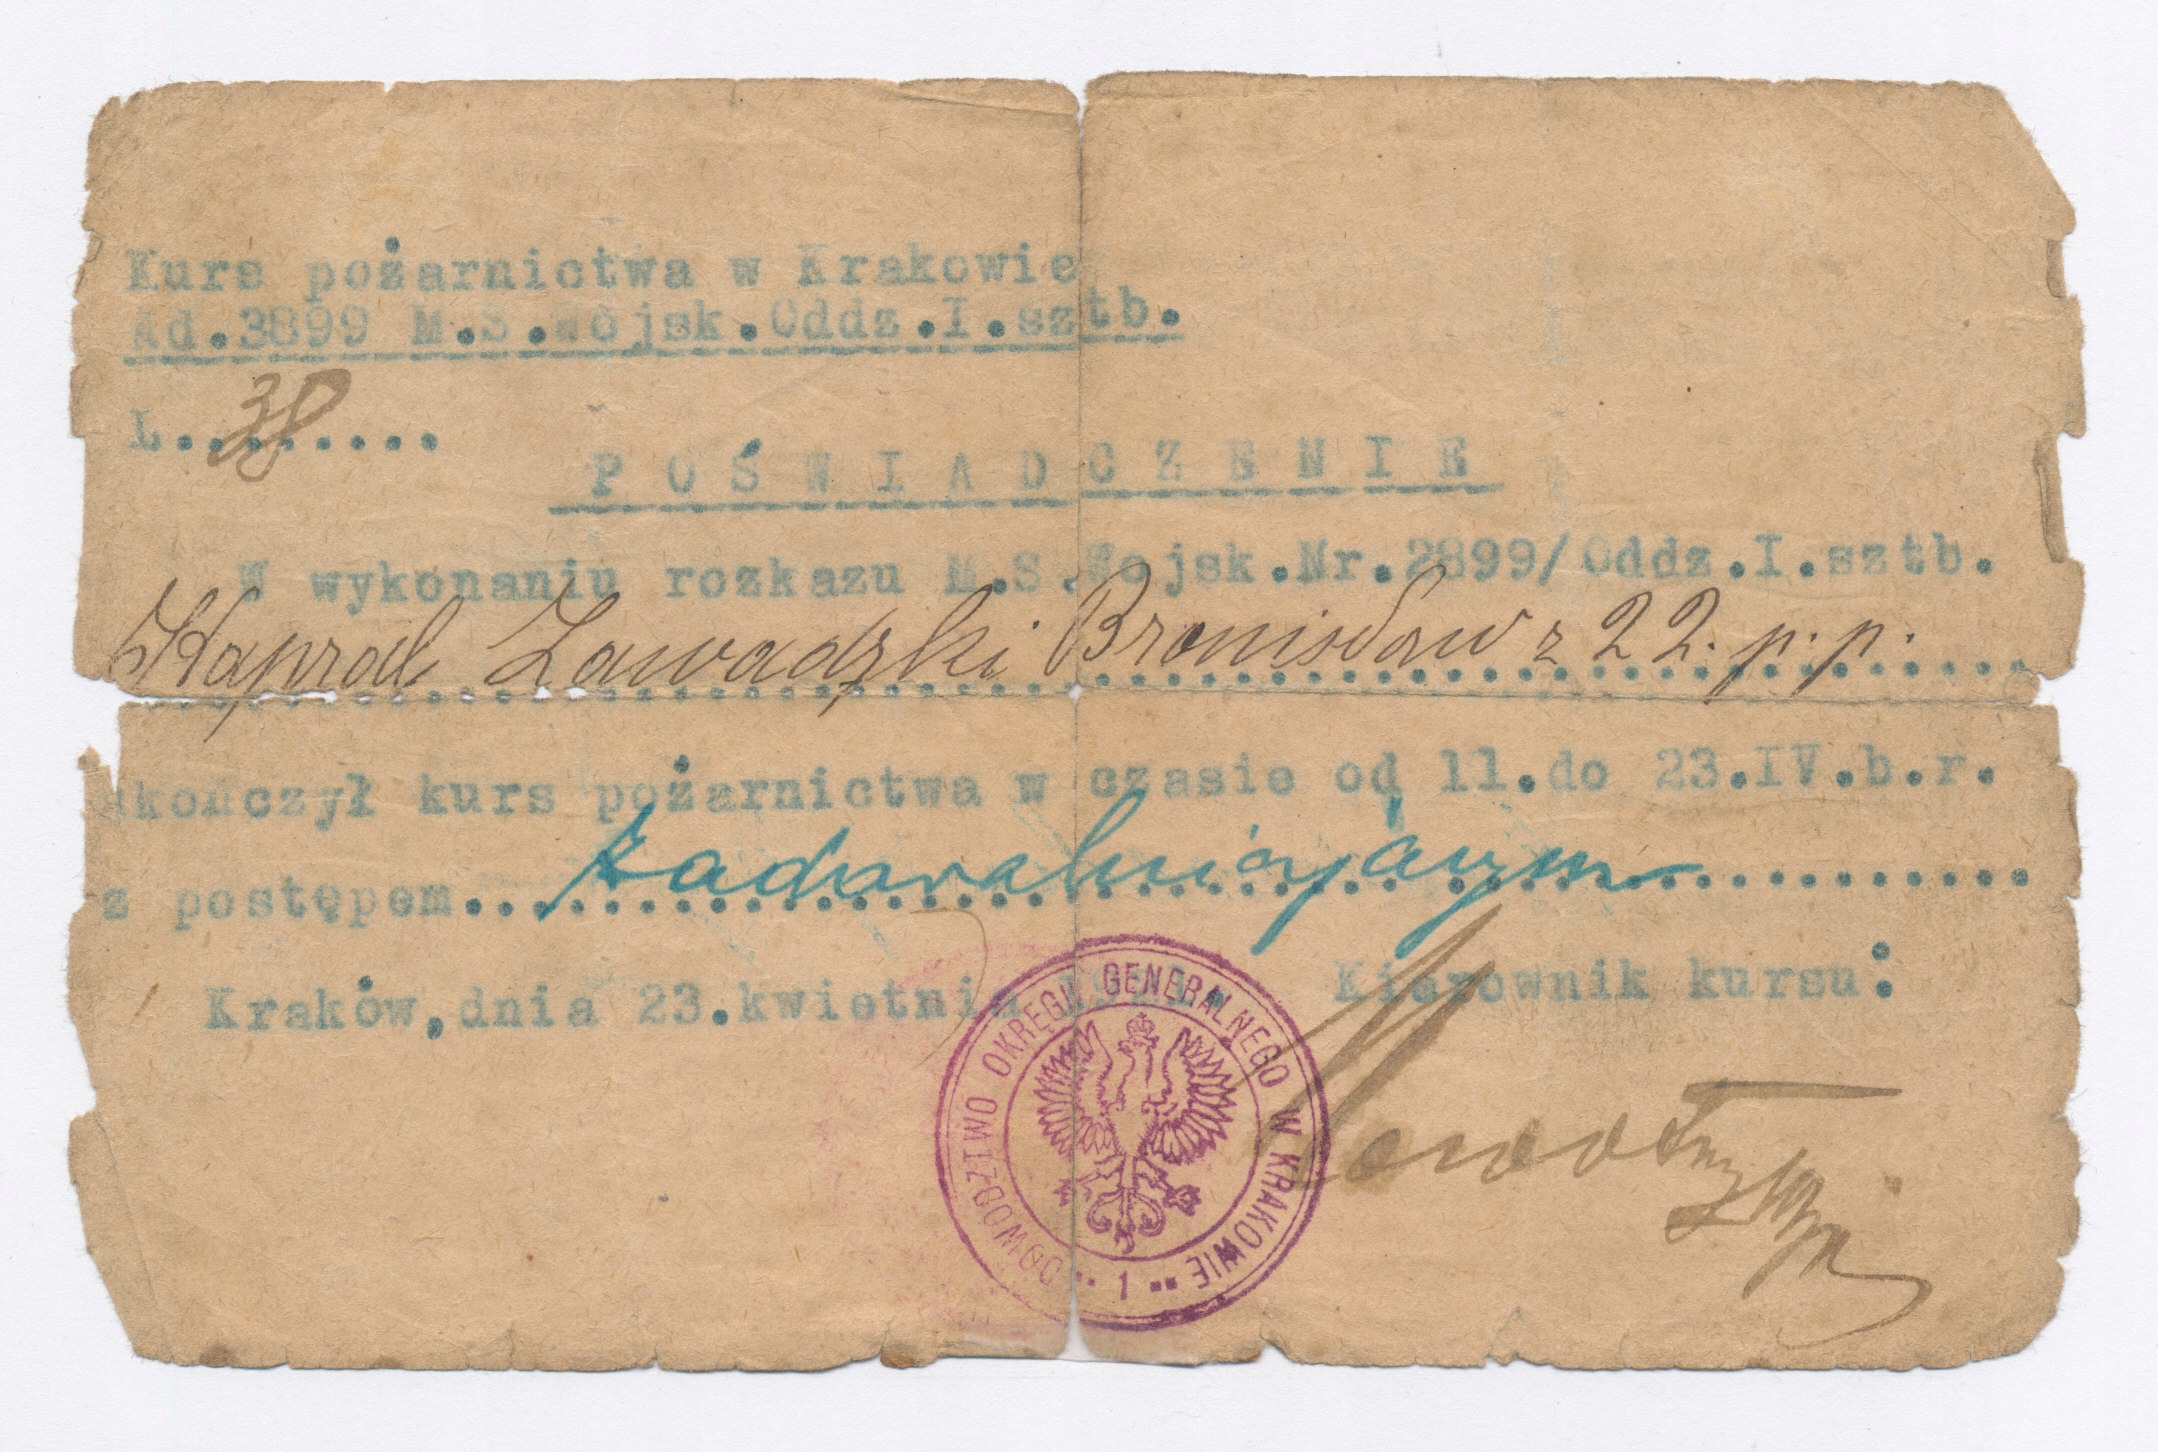 Kurs pożarnictwa w Krakowie
Ad.3899 M.S.Wojsk.Oddz.I.sztb.
L.........
38
POŚWIADCZENIE
W wykonaniu rozkazu M.S.Wojsk.Nr.2899/Oddz.I.sztb.
Kapral Zawadzki Bronisław z 22. p. p.
ukończył kurs pożarnictwa w czasie od 11.do 23.IV.b.r.
z postępem.....zadawalniającym.....
Kraków,dnia 23.kwietnia Kierownik kursu:
DOWÓDZTWO OKRĘGU GENERALNEGO W KRAKOWIE
1